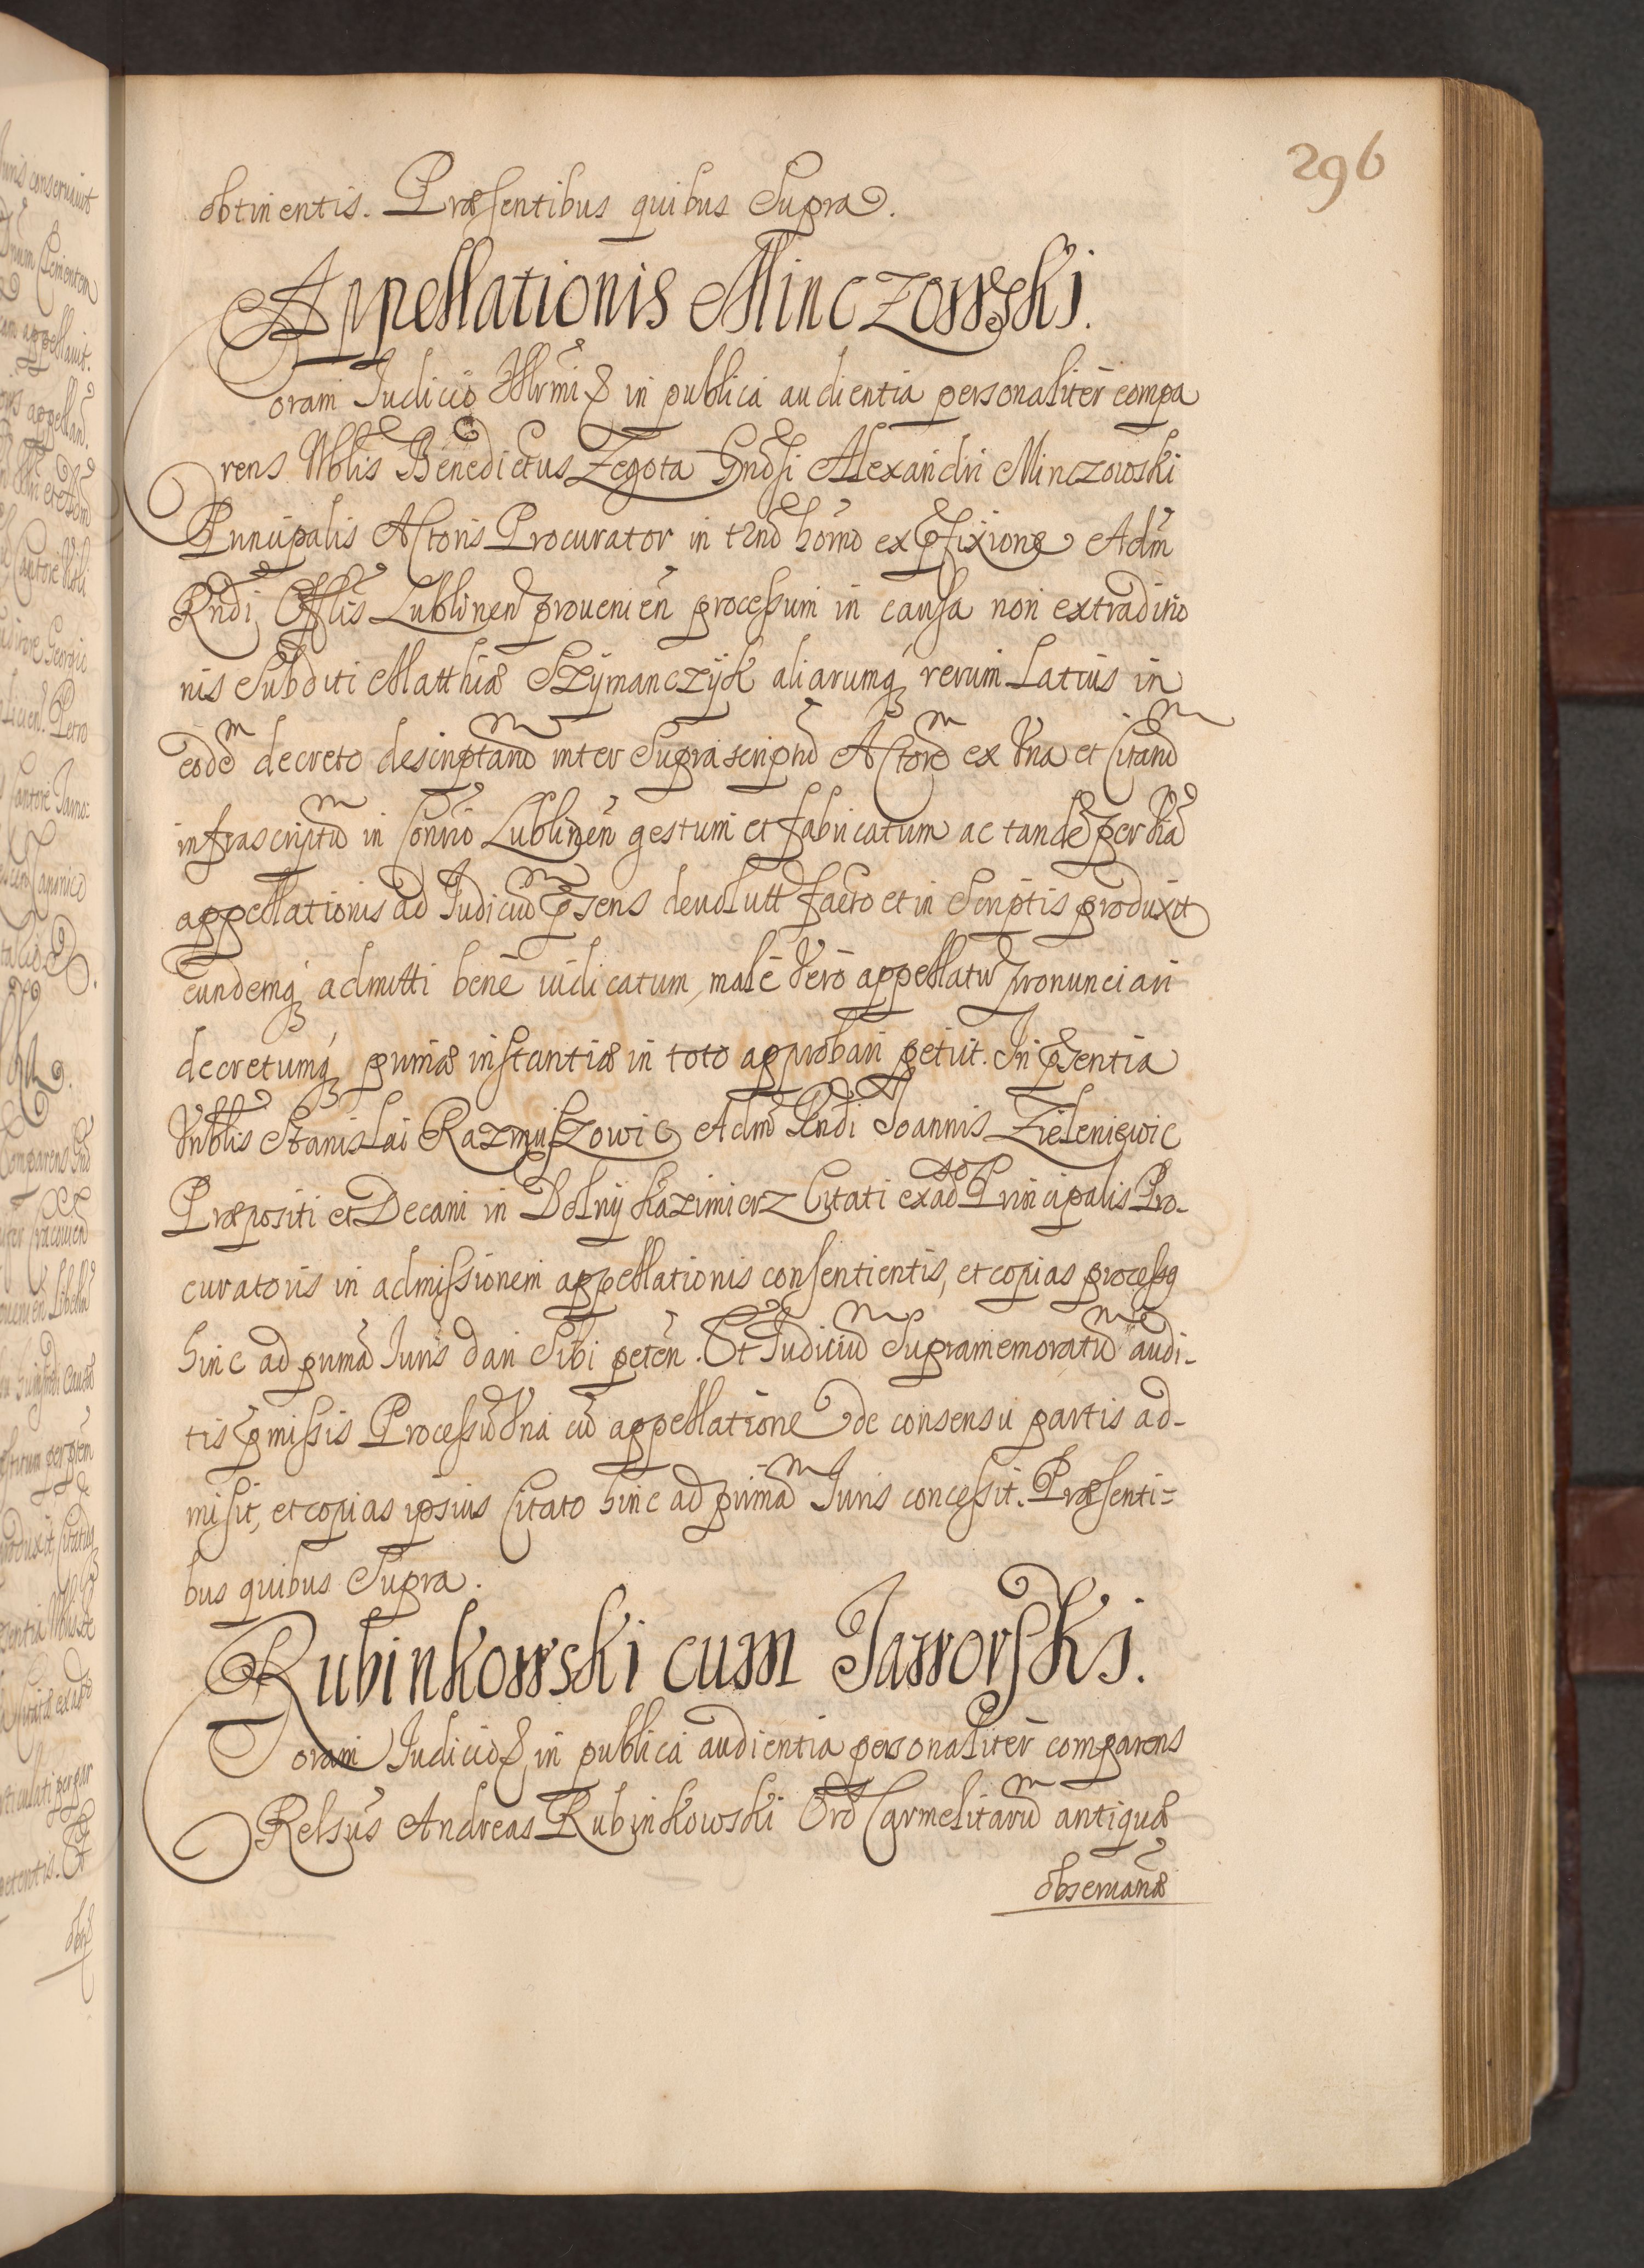 296
obtinentis. Præsentibus quibus Supra.
Appellationis Minczowski.
Coram Judicio Illrmi & in publica audientia personaliter compa
rens Nblis Benedictus Zegota Gnosi Alexandri Minczowski
Principalis Actoris Procurator in tno homo ex pfixione Adm
Rndi Offlis Lublinen provenien processum in causa non extraditio
nis Subditi Matthiæ Szymanczyk aliarumq rerum Latius in
eode decreto descriptaru inter Suprascriptu Actore ex Una et Citatu
infrascriptu in Connio Lublinen gestum et fabricatum ac tande per via
appellationis ad Judiciu psens devolutt facto et in Scriptis produxit
eundemq admitti bene iudicatum, male vero appellatu pronunciari
decretumq primæ instantiæ in toto approbari petiit. In psentia
Vnblis Stanislai Razmuszowic Adm Rndi Joannis Zieleniewic
Præpositi et Decani in Dolny Kazimierz Citati ex adso Principalis Pro-
curatoris in admissionem appellationis consentientis, et copias process9
hinc ad prima Juris dari Sibi peten. Et Judiciu Supramemoratu audi-
tis pmissis Processu Una cu appellatione de consensu partis ad-
misit, et copias ipsius Citato hinc ad prima Juris concessit. Præsenti=
bus quibus Supra.
Rubinkowski cum Jaworski.
Coram Judicio & in publica audientia personaliter comparens
Relsus Andreas Rubinkowski Ord Carmelitaru antiquæ
observanæ